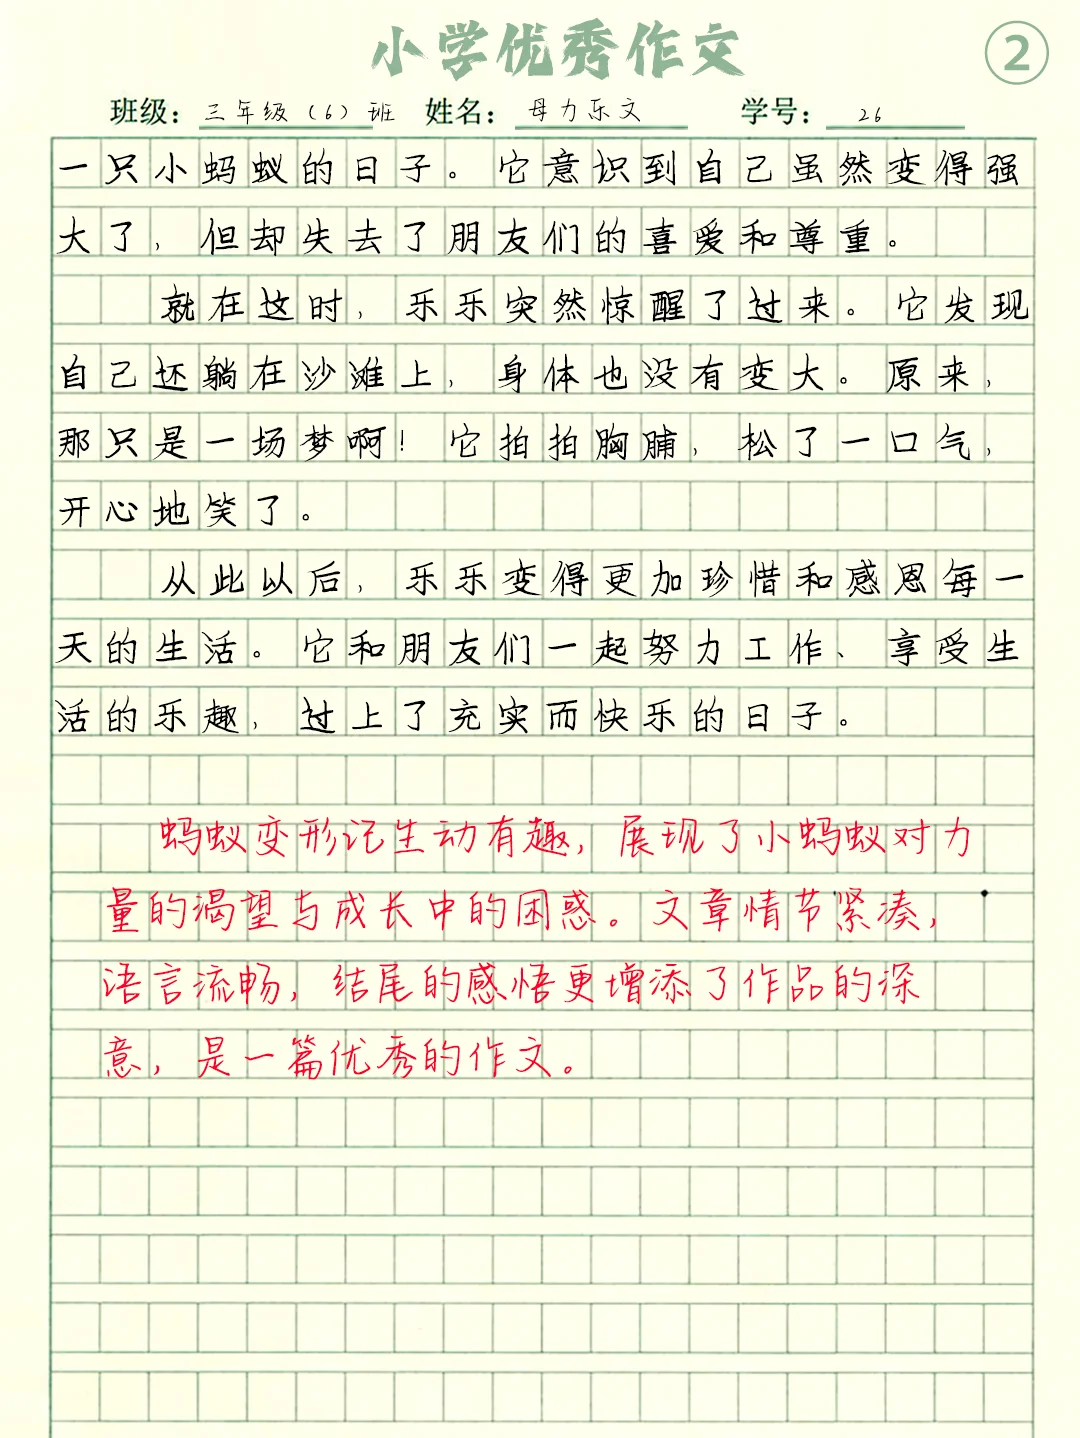 小学优秀作文
②
班级：三年级（6）班 姓名：母力乐文 学号：26
一只小蚂蚁的日子。它意识到自己虽然变得强
大了，但却失去了朋友们的喜爱和尊重。
就在这时，乐乐突然惊醒了过来。它发现
自己还躺在沙滩上，身体也没有变大。原来，
那只是一场梦啊！它拍拍胸脯，松了一口气，
开心地笑了。
从此以后，乐乐变得更加珍惜和感恩每一
天的生活。它和朋友们一起努力工作、享受生
活的乐趣，过上了充实而快乐的日子。
蚂蚁变形记生动有趣，展现了小蚂蚁对力
量的渴望与成长中的困惑。文章情节紧凑，
语言流畅，结尾的感悟更增添了作品的深
意，是一篇优秀的作文。